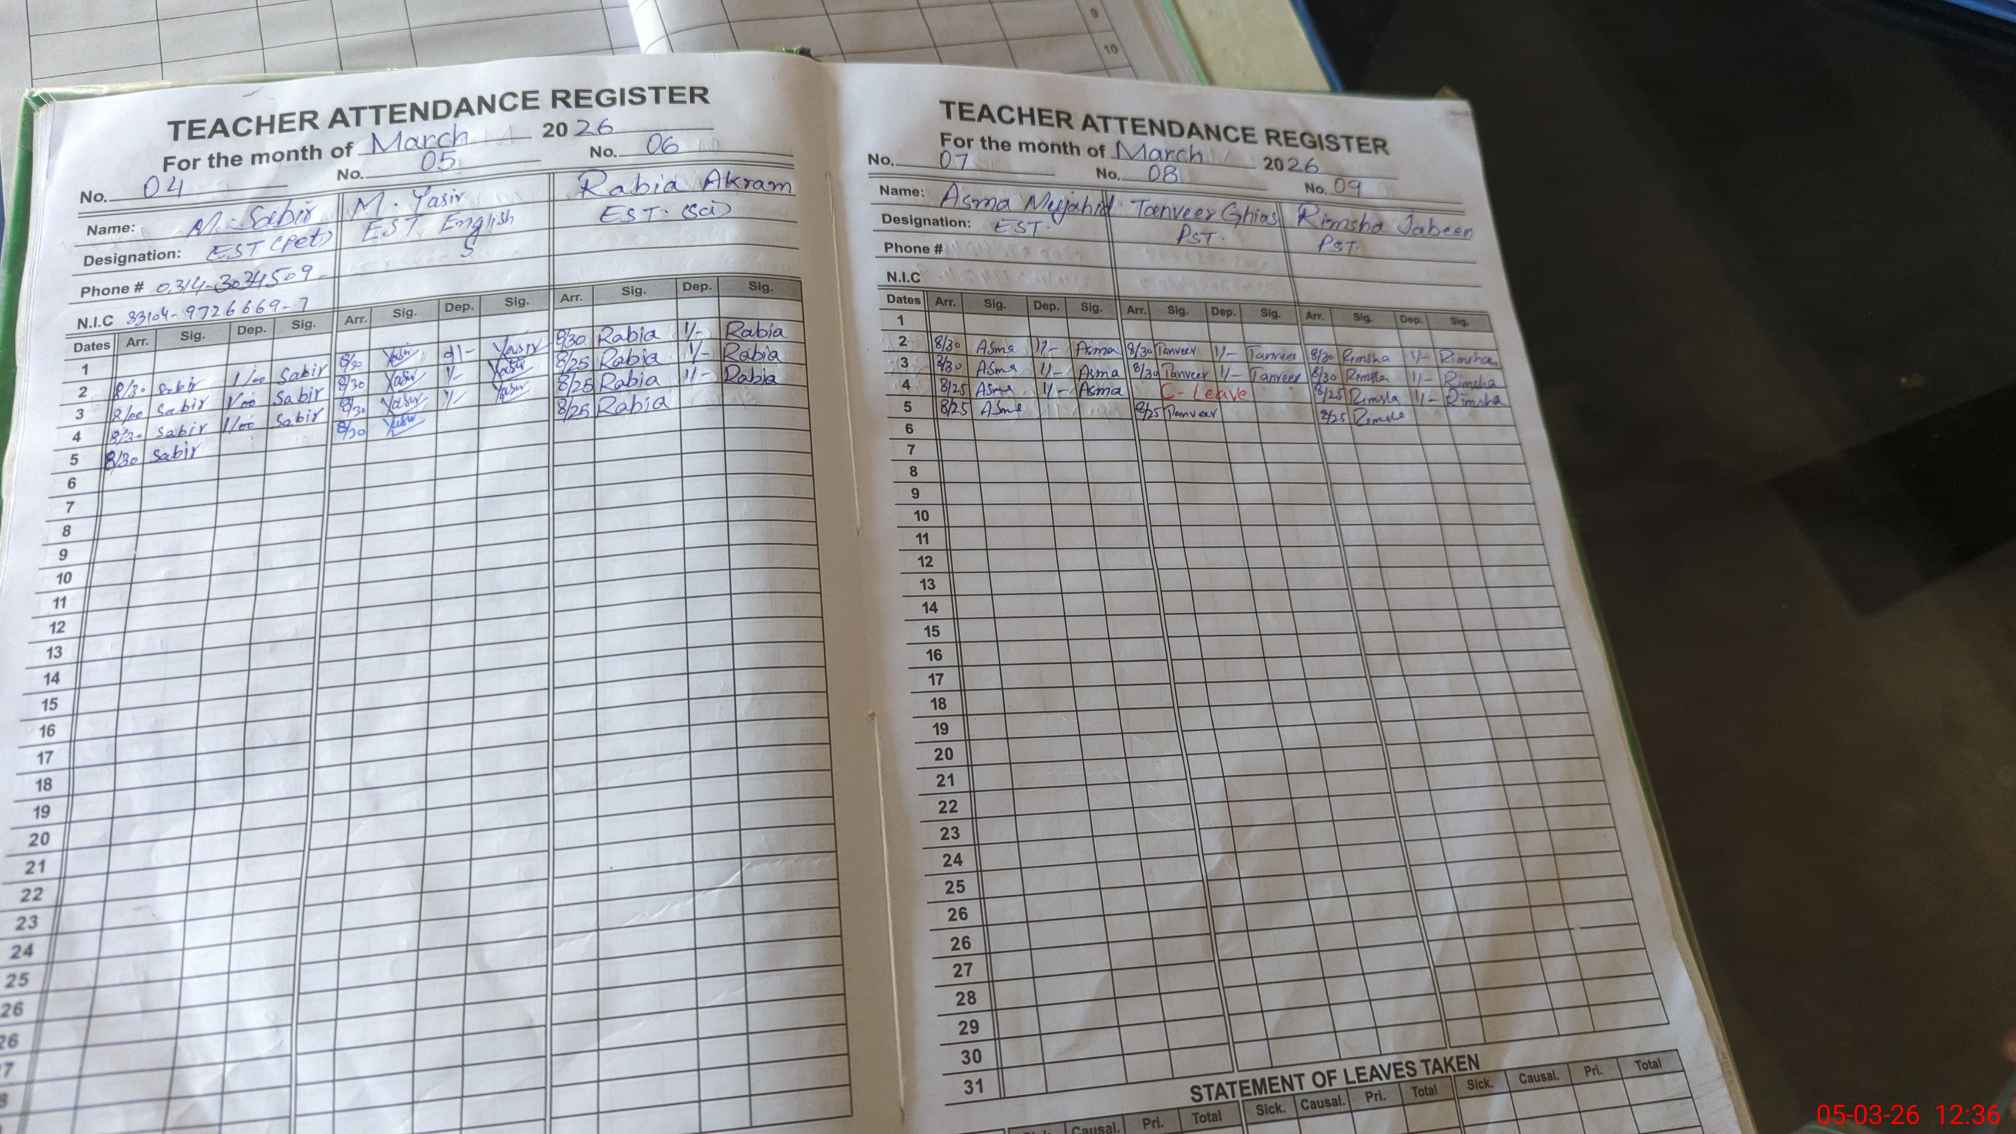 9
10
TEACHER ATTENDANCE REGISTER
For the month of March 2026
No. 04 No. 05 No. 06
Name: M. Sabir M. Yasir Rabia Akram
Designation: EST (Pet) EST English EST. (Sci)
Phone # 0314-3034509
N.I.C 33104-9726669-7
Dates Arr. Sig. Dep. Sig. Arr. Sig. Dep. Sig. Arr. Sig. Dep. Sig.
1
2 8/30 Sabir 1/00 Sabir 8/30 Yasir 1/- Yasir 8/30 Rabia 1/- Rabia
3 8/00 Sabir 1/00 Sabir 8/30 Yasir 1/- Yasir 8/25 Rabia 1/- Rabia
4 8/30 Sabir 1/00 Sabir 8/30 Yasir 1/ Yasir 8/25 Rabia 1/- Rabia
5 8/30 Sabir 8/30 Yasir 8/25 Rabia
6
7
8
9
10
11
12
13
14
15
16
17
18
19
20
21
22
23
24
25
26
26
7
8
TEACHER ATTENDANCE REGISTER
For the month of March 2026
No. 07 No. 08 No. 09
Name: Asma Mujahid Tanveer Ghias Rimsha Jabeen
Designation: EST. PST. PST.
Phone #
N.I.C
Dates Arr. Sig. Dep. Sig. Arr. Sig. Dep. Sig. Arr. Sig. Dep. Sig.
1
2 8/30 Asma 1/- Asma 8/30 Tanveer 1/- Tanveer 8/30 Rimsha 1/- Rimsha
3 8/30 Asma 1/- Asma 8/30 Tanveer 1/- Tanveer 8/30 Rimsha 1/- Rimsha
4 8/25 Asma 1/- Asma C- Leave 8/25 Rimsha 1/- Rimsha
5 8/25 Asma 8/25 Tanveer 8/25 Rimsha
6
7
8
9
10
11
12
13
14
15
16
17
18
19
20
21
22
23
24
25
26
26
27
28
29
30
31
STATEMENT OF LEAVES TAKEN
Sick. Causal. Pri. Total Sick. Causal. Pri. Total Sick. Causal. Pri. Total
05-03-26 12:36